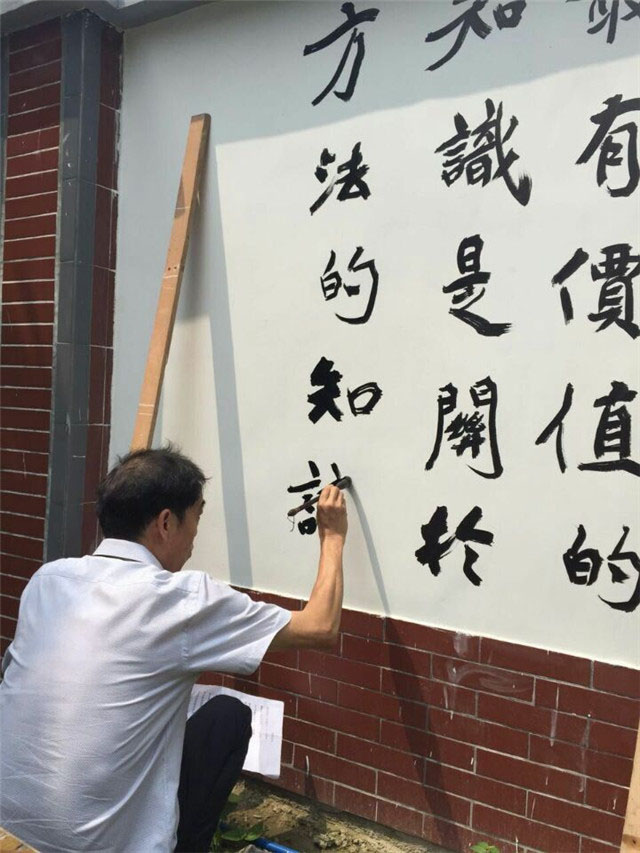 最有價值的
知識是關於
方法的知